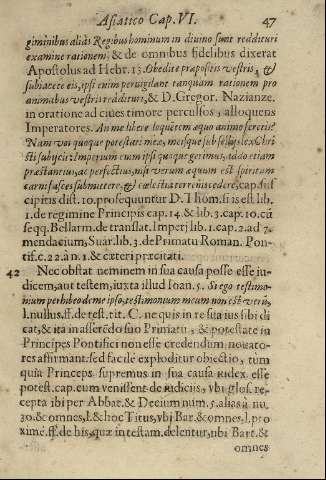 Asiatico Cap. VI. 47
giminibus aliàs Regibus hominum in diuino sunt reddituri
examine rationem, & de omnibus fidelibus dixerat
Apostolus ad Hebr. 13. Obedite præpositis vestris, &
subiacete eis, ipsi enim peruigilant tanquam rationem pro
animabus vestris reddituri, & D. Gregor. Nazianze.
in oratione ad ciues timore percussos, alloquens
Imperatores. An me libere loquétem æquo animo feretis?
Nam vos quoque potestati meæ, meisque subselijs lex Chri-
sti subijcit: Imperium enim ipsi quoque gerimus, addo etiam
præstantius, ac perfectius, nisi verum æquum est spiritum
carni fasces submittere, & cœlestia terrenis cedere, cap. sus
cipitis dist. 10. prosequuntur D. Thom. si is est lib.
1. de regimine Principis cap. 14. & lib. 3. cap. 10. cũ
seqq. Bellarm. de translat. Imperij lib. 1. cap. 2. ad 7.
mendacium, Suar. lib. 3. de Primatu Roman. Pon-
tif. c. 22. à n. 1. & cæteri præcitati.
42 Nec obstat neminem in sua causa posse esse iu-
dicem, aut testem, iuxta illud Ioan. 5. Si ego testimo-
nium perhibeo de me ipso, testimonium meum non est verũ,
l. nullus, ff. de test. tit. C. ne quis in re sua ius sibi di
cat, & ita in asserẽdo suo Primatu, & potestate in
Principes Pontifici non esse credendum, nouato-
res affirmant: sed facilè exploditur obiectio, tùm
quia Princeps supremus in sua causa iudex esse
potest. cap. cum venissent de iudicijs, vbi glos. re-
cepta ibi per Abbat. & Decium num. 5. alias à nu.
30. & omnes, l. & hoc Titus, vbi Bar. & omnes, l. pro
ximé. ff. de his, quæ in testam. delentur, ubi Bart. &
omnes